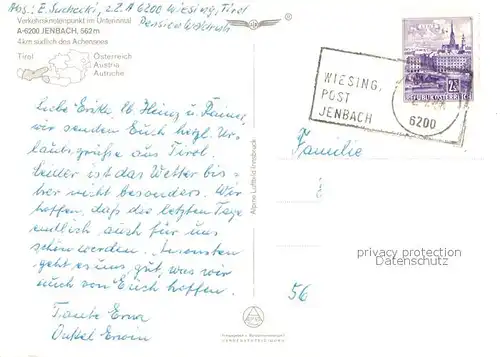 Abs.: E. Suchacki, z.Z. A 6200 Wiesing, Tirol
Pension
Verkehrsknotenpunkt im Unterinntal
A-6200 JENBACH, 562m
4km südlich des Achensees
Tirol
Österreich
Austria
Autriche
WIESING,
POST
JENBACH
6200
REPUBLIK ÖSTERREICH
Liebe Erika, lb. Heinz u. Rainer,
wir senden Euch herzl. Ur-
laubsgrüße aus Tirol.
Leider ist das Wetter bis-
her nicht besonders. Wir
hoffen, daß die letzten Tage
endlich auch für uns
schön werden. Ansonsten
geht es uns gut, was wir
auch von Euch hoffen.
Tante Erna
Onkel Erwin
Familie
Alpine Luftbild Innsbruck
privacy protection
Datenschutz
56